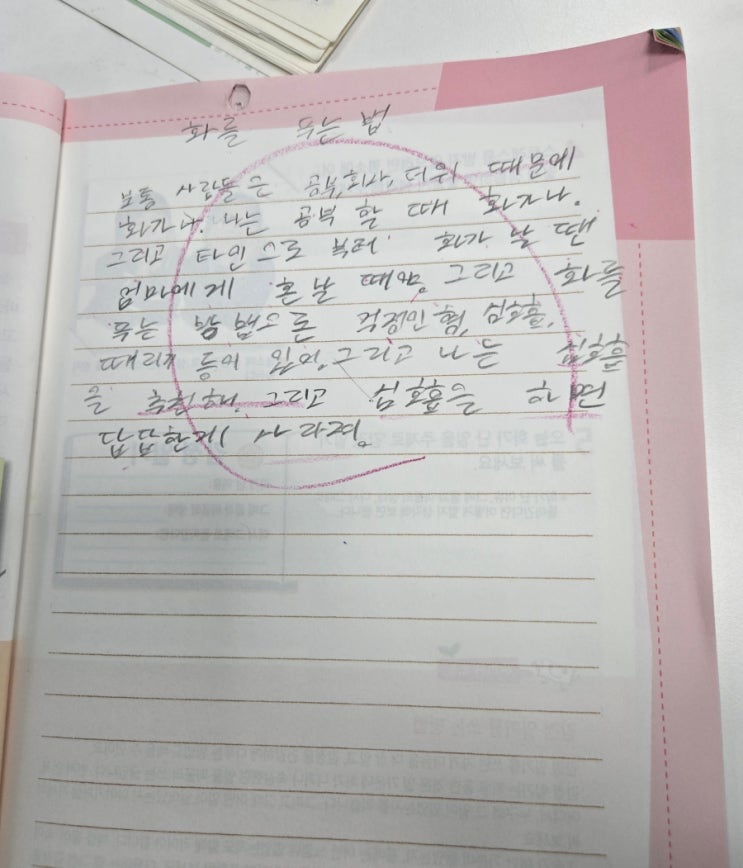 화를 푸는 법
보통 사람들은 공부, 회사, 더위 때문에
화가나. 나는 공부 할 때 화가나.
그리고 타인으로 부터 화가 날 땐
엄마에게 혼날 때야. 그리고 화를
푸는 방법으론 심호흡,
때리치 등이 있어. 그리고 나는 심호흡
을 추천해. 그리고 심호흡을 하면
답답한게 사라져.